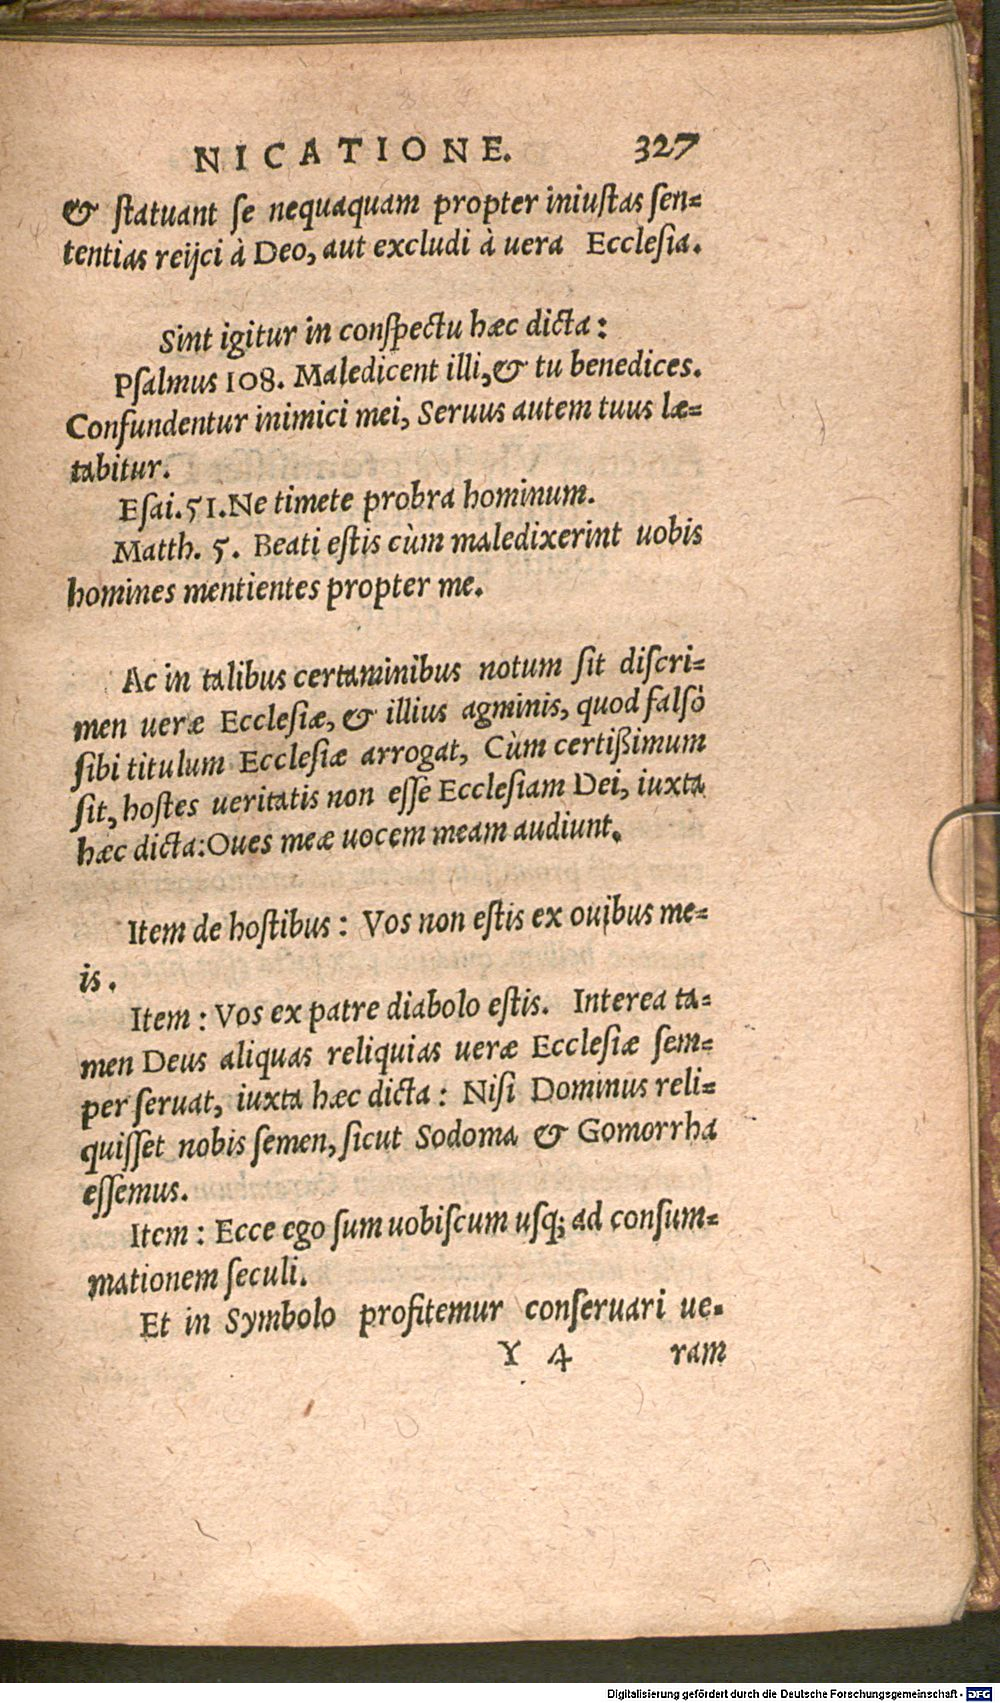 NICATIONE. 327
& ſtatuant ſe nequaquam propter iniuſtas ſen=
tentias reijci à Deo, aut excludi à uera Eccleſia.
Sint igitur in conſpectu hæc dicta:
Pſalmus 108. Maledicent illi, & tu benedices.
Confundentur inimici mei, Seruus autem tuus læ=
tabitur.
Eſai. 51. Ne timete probra hominum.
Matth. 5. Beati eſtis cùm maledixerint uobis
homines mentientes propter me.
Ac in talibus certaminibus notum ſit diſcri=
men ueræ Eccleſiæ, & illius agminis, quod falſò
ſibi titulum Eccleſiæ arrogat, Cùm certißimum
ſit, hoſtes ueritatis non eſſe Eccleſiam Dei, iuxta
hæc dicta: Oues meæ uocem meam audiunt.
Item de hoſtibus: Vos non eſtis ex ouibus me=
is.
Item: Vos ex patre diabolo eſtis. Interea ta=
men Deus aliquas reliquias ueræ Eccleſiæ ſem=
per ſeruat, iuxta hæc dicta: Niſi Dominus reli=
quiſſet nobis ſemen, ſicut Sodoma & Gomorrha
eſſemus.
Item: Ecce ego ſum uobiſcum uſq; ad conſum=
mationem ſeculi.
Et in Symbolo profitemur conſeruari ue=
Y 4 ram
Digitalisierung gefördert durch die Deutsche Forschungsgemeinschaft - DFG